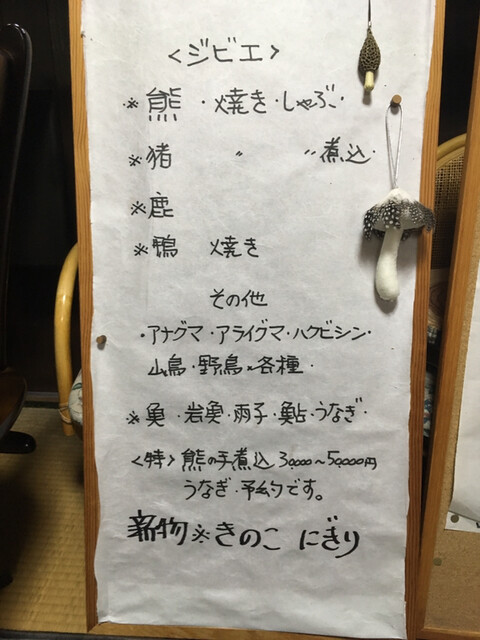 ＜ジビエ＞
※熊・焼き・しゃぶ・
※猪 〃 〃 煮込・
※鹿
※鴨 焼き
その他
・アナグマ・アライグマ・ハクビシン・
山鳥・野鳥×各種・
※魚・岩魚・雨子・鮎・うなぎ・
＜特＞熊の手煮込 30,000〜50,000円
うなぎ・予約です。
新物※きのこ にぎり